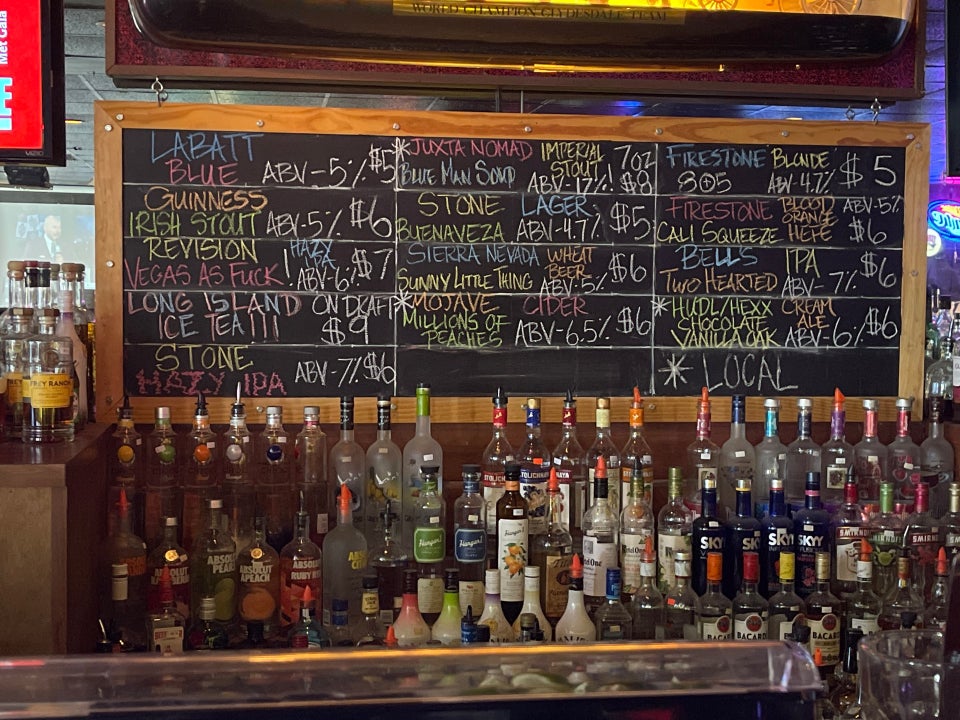 Met Gala
WORLD CHAMPION CLYDESDALE TEAM
LABATT
BLUE ABV-5% $5
GUINNESS
IRISH STOUT ABV-5% $6
REVISION HAZY IPA
VEGAS AS FUCK! ABV-6% $7
LONG ISLAND ON DRAFT
ICE TEA!!! $9
STONE
HAZY IPA ABV-7% $6
*JUXTA NOMAD IMPERIAL STOUT 7OZ
BLUE MAN SOUP ABV-17%! $8
STONE LAGER
BUENAVEZA ABV-4.7% $5
SIERRA NEVADA WHEAT BEER
SUNNY LITTLE THING ABV-5% $6
*MOJAVE CIDER
MILLIONS OF
PEACHES ABV-6.5% $6
FIRESTONE BLONDE
805 ABV-4.7% $5
FIRESTONE BLOOD ORANGE HEFE ABV-5%
CALI SQUEEZE $6
BELLS IPA
TWO HEARTED ABV-7% $6
*HUDL/HEXX CREAM ALE
CHOCOLATE
VANILLA OAK ABV-6% $6
* LOCAL
FREY RANCH
STOLICHNAYA
Hangar 1
Hangar 1
SKYY
SKYY
SKYY
SKYY
SMIRNOFF
ABSOLUT
PEARS
ABSOLUT
APEACH
ABSOLUT
RUBY RED
Ketel One
BACARDI
BACARDI
BACARDI
BACARDI
VIZIO